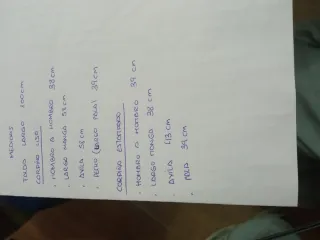 MEDIDAS
TODO LARGO 100cm
CORPIÑO LISO
· HOMBRO A HOMBRO 38cm
· LARGO MANGA 53 cm
· AXILA 56 cm
· PECHO 39cm
CORPIÑO ESTAMPADO
· HOMBRO A HOMBRO 39 cm
· LARGO MANGA 38 cm
· AXILA 43 cm
· cm